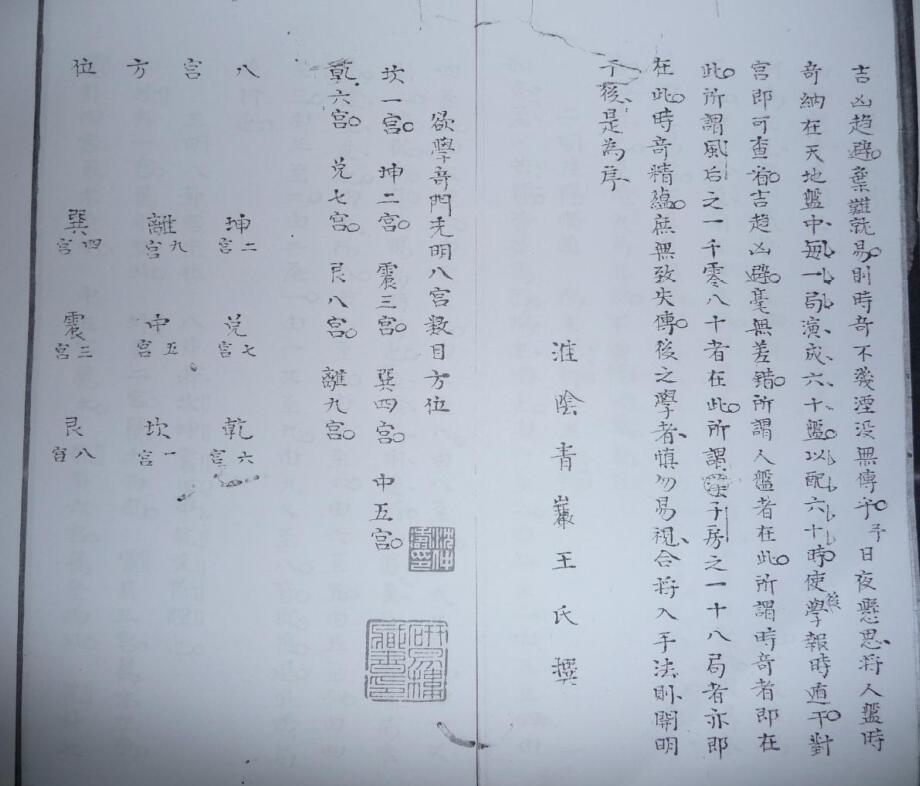 吉凶趨避。棄難就易。則時奇不幾湮没無傳乎。予日夜懸思、将人盤時
奇納在天地盤中、每一局演成六十盤。以配六十時。使後學報時遁干。對
宮即可查看。吉趨凶避。毫無差錯。所謂人盤者在此。所謂時奇者即在
此。所謂風后之一千零八十者在此。所謂子房之一十八局者亦即
在此。時奇精蘊。庶無致失傳。後之學者、慎勿易視。合将入手法則、開明
于後、是為序
淮陰青巖王氏撰
欲學奇門先明八宮数目方位
坎一宮。坤二宮。震三宮。巽四宮。中五宮。
乾六宮。兑七宮。艮八宮。離九宮。
沈仲濤印
研易樓藏書印
八宮方位
坤二宮 兑七宮 乾六宮
離九宮 中五宮 坎一宮
巽四宮 震三宮 艮八宮